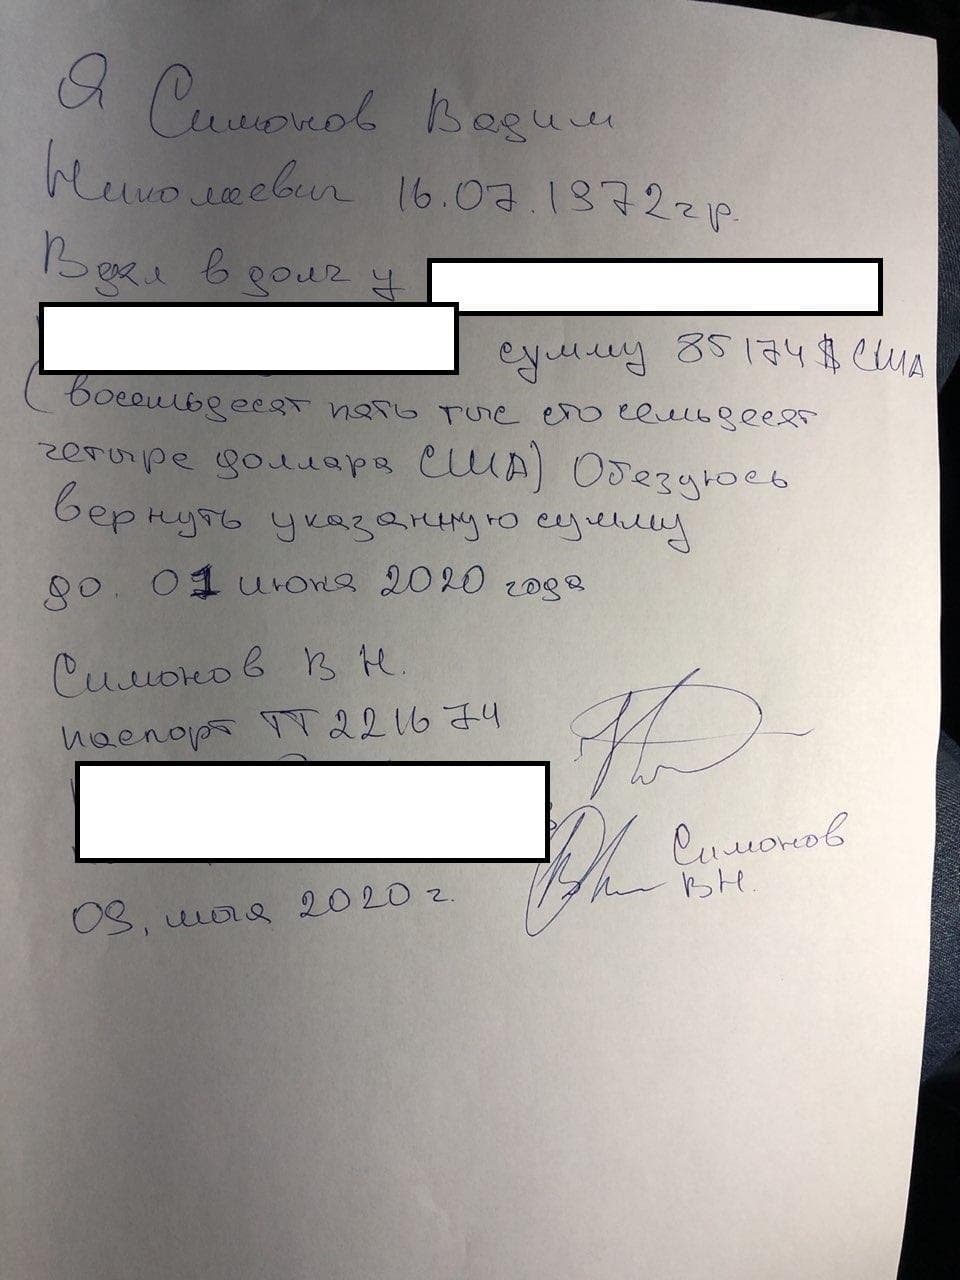 Я Симонов Вадим
Николаевич 16.07.1972 г р.
Взял в долг у
сумму 85174 $ США
(восемьдесят пять тыс сто семьдесят
четыре доллара США) Обезуюсь
вернуть указанную сумму
до. 01 июня 2020 года
Симонов В Н.
паспорт ТТ 221674
Симонов
ВН.
09, мая 2020 г.